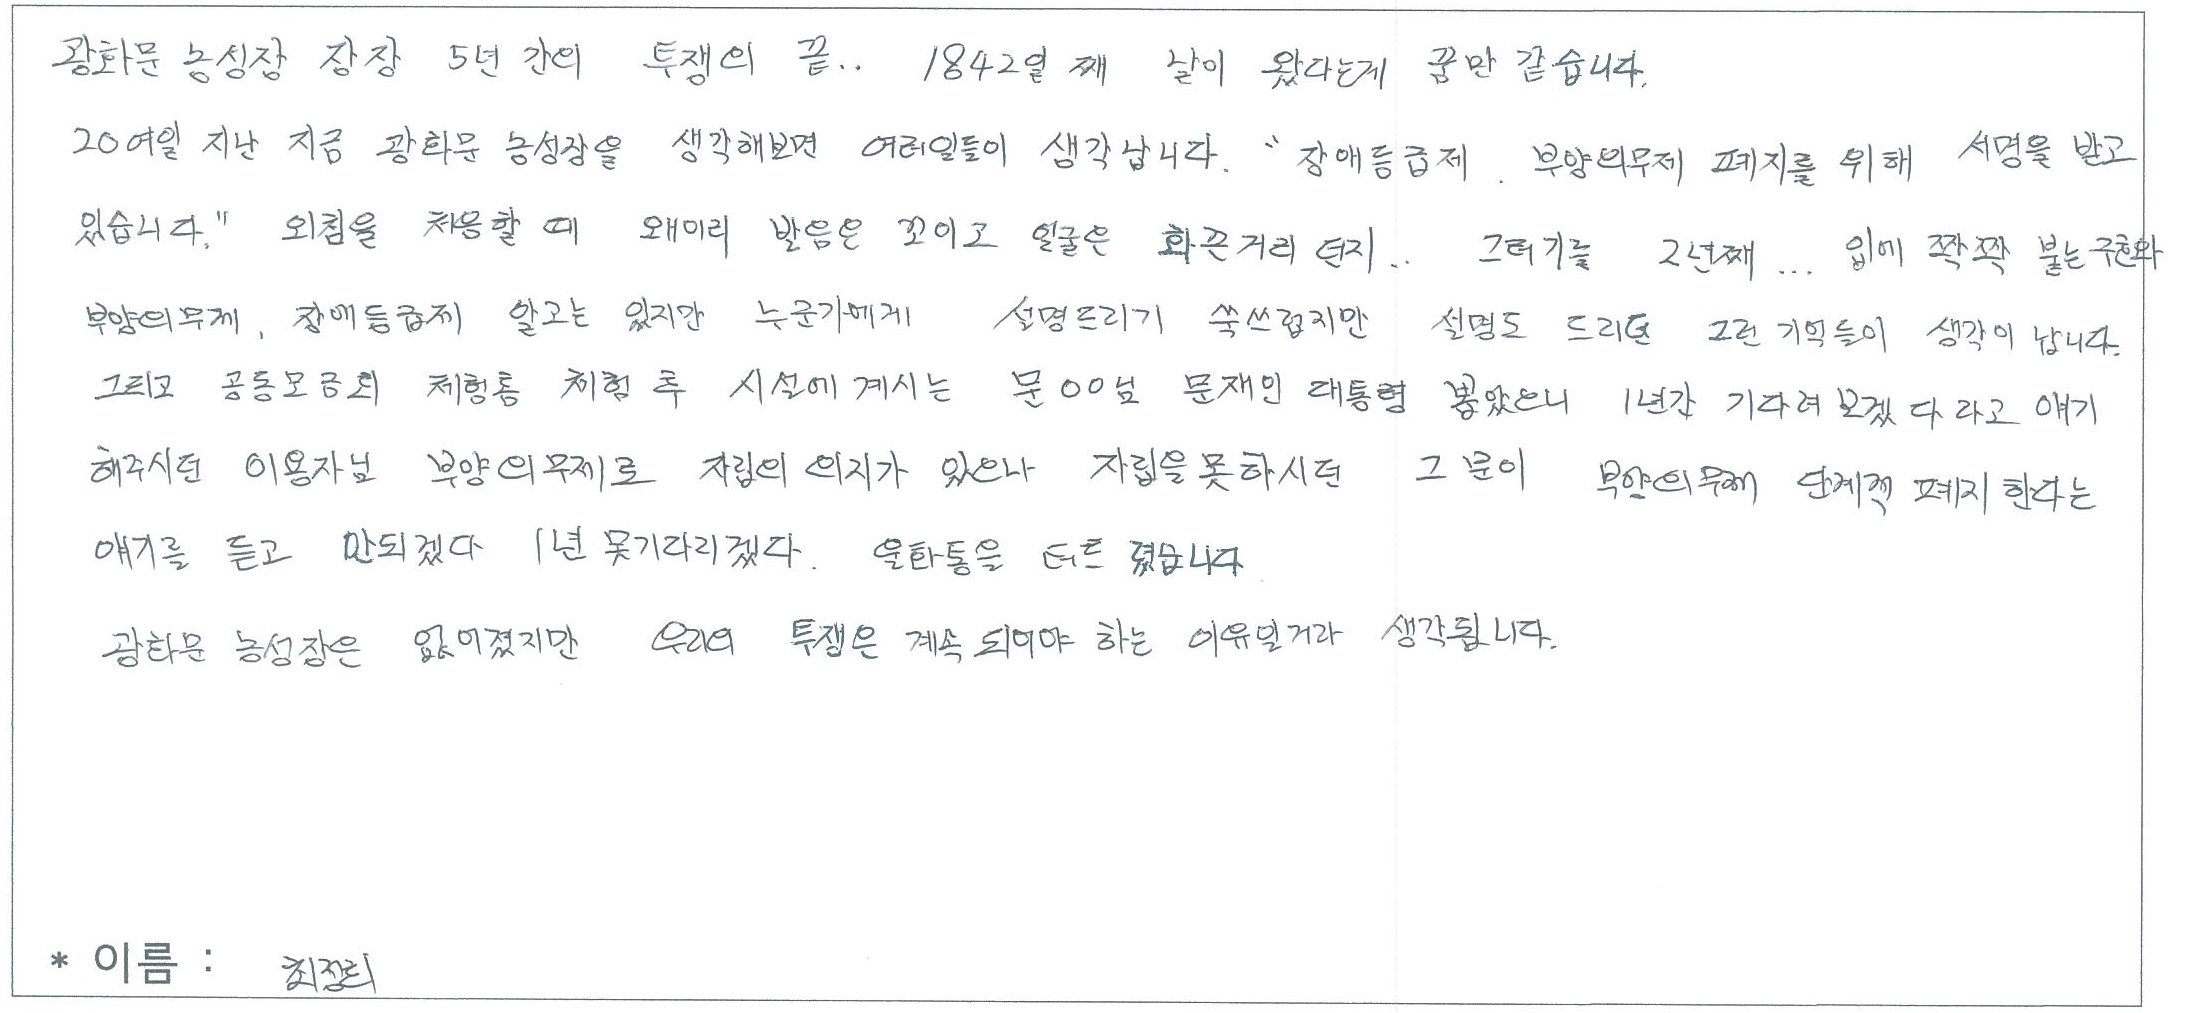 광화문 농성장 장장 5년 간의 투쟁의 끝.. 1842일 째 날이 왔다는게 꿈만 같습니다.
20여일 지난 지금 광화문 농성장을 생각해보면 여러일들이 생각납니다. "장애등급제. 부양의무제 폐지를 위해 서명을 받고
있습니다." 외침을 처음할 때 왜이리 발음은 꼬이고 얼굴은 화끈거리 던지.. 그러기를 2년째... 입에 짝짝 붙는 구호와
부양의무제, 장애등급제 알고는 있지만 누군가에게 설명드리기 쑥쓰럽지만 설명도 드리던 그런 기억들이 생각이 납니다.
그리고 공동모금회 체험홈 체험 후 시설에 계시는 문OO님 문재인 대통령 뽑았으니 1년간 기다려 보겠 다 라고 얘기
해주시던 이용자님 부양의무제로 자립의 의지가 있으나 자립을 못하시던 그 분이 부양의무제 단계적 폐지 한다는
얘기를 듣고 안되겠다 1년 못기다리겠다. 울화통을 터트 렸습니다
광화문 농성장은 없어졌지만 우리의 투쟁은 계속 되어야 하는 이유일거라 생각됩니다.
* 이름 : 최정희